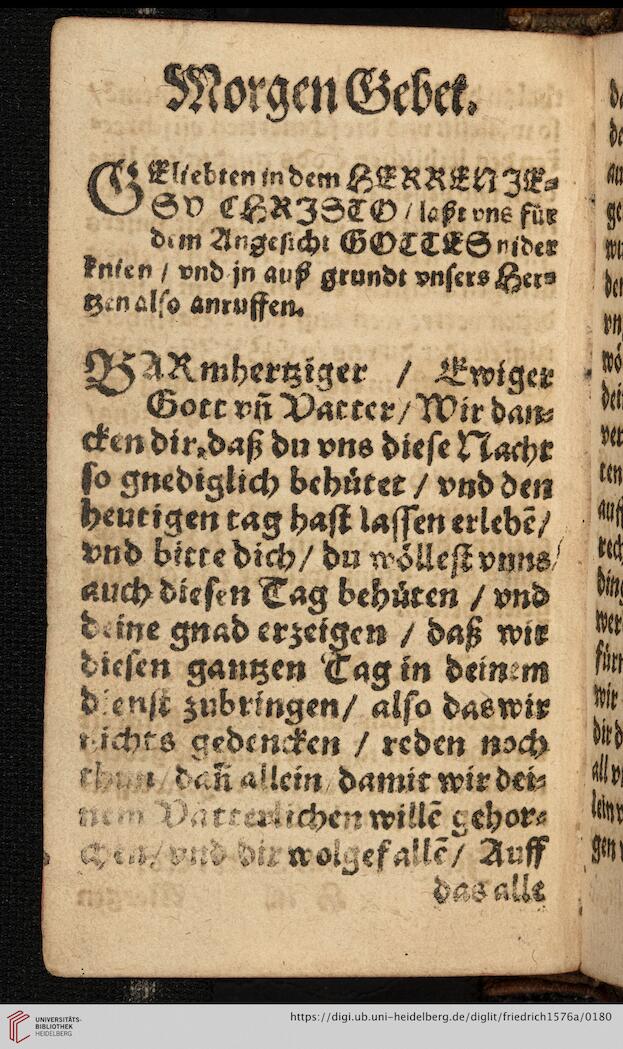 Morgen Gebet.
GEliebten in dem HERREN JE-
SV CHRISTO / laßt vns für
dem Angesicht GOTTES nider
knien / vnd jn auß grundt vnsers Her-
tzen also anruffen.
BARmhertziger / Ewiger
Gott vñ Vatter / Wir dan-
cken dir, daß du vns diese Nacht
so gnediglich behütet / vnd den
heutigen tag hast lassen erlebē /
vnd bitte dich / du wöllest vnns /
auch diesen Tag behüten / vnd
deine gnad erzeigen / daß wir
diesen gantzen Tag in deinem
dienst zubringen / also das wir
nichts gedencken / reden noch
thun / dañ allein damit wir dei-
nem Vatterlichen willē gehor-
chen / vnd dir wolgefallē / Auff
das alle
UNIVERSITÄTS-
BIBLIOTHEK
HEIDELBERG
https://digi.ub.uni-heidelberg.de/diglit/friedrich1576a/0180